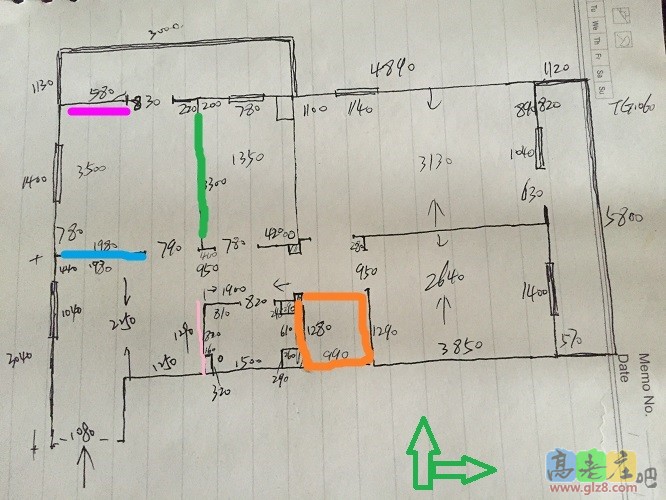 3000
Tu We Th Fr Sa Su
1130
580
830
220
200
780
4890
1100
1140
1120
890
820
1400
3500
3300
1350
3130
1040
630
5800
780
1980
790
780
280
440
950
950
2640
1400
1040
1900
820
810
1290
610
1280
1290
990
2040
1250
1500
260
320
290
3850
570
1080
Memo No.
Date
高老庄吧
www.glz8.com